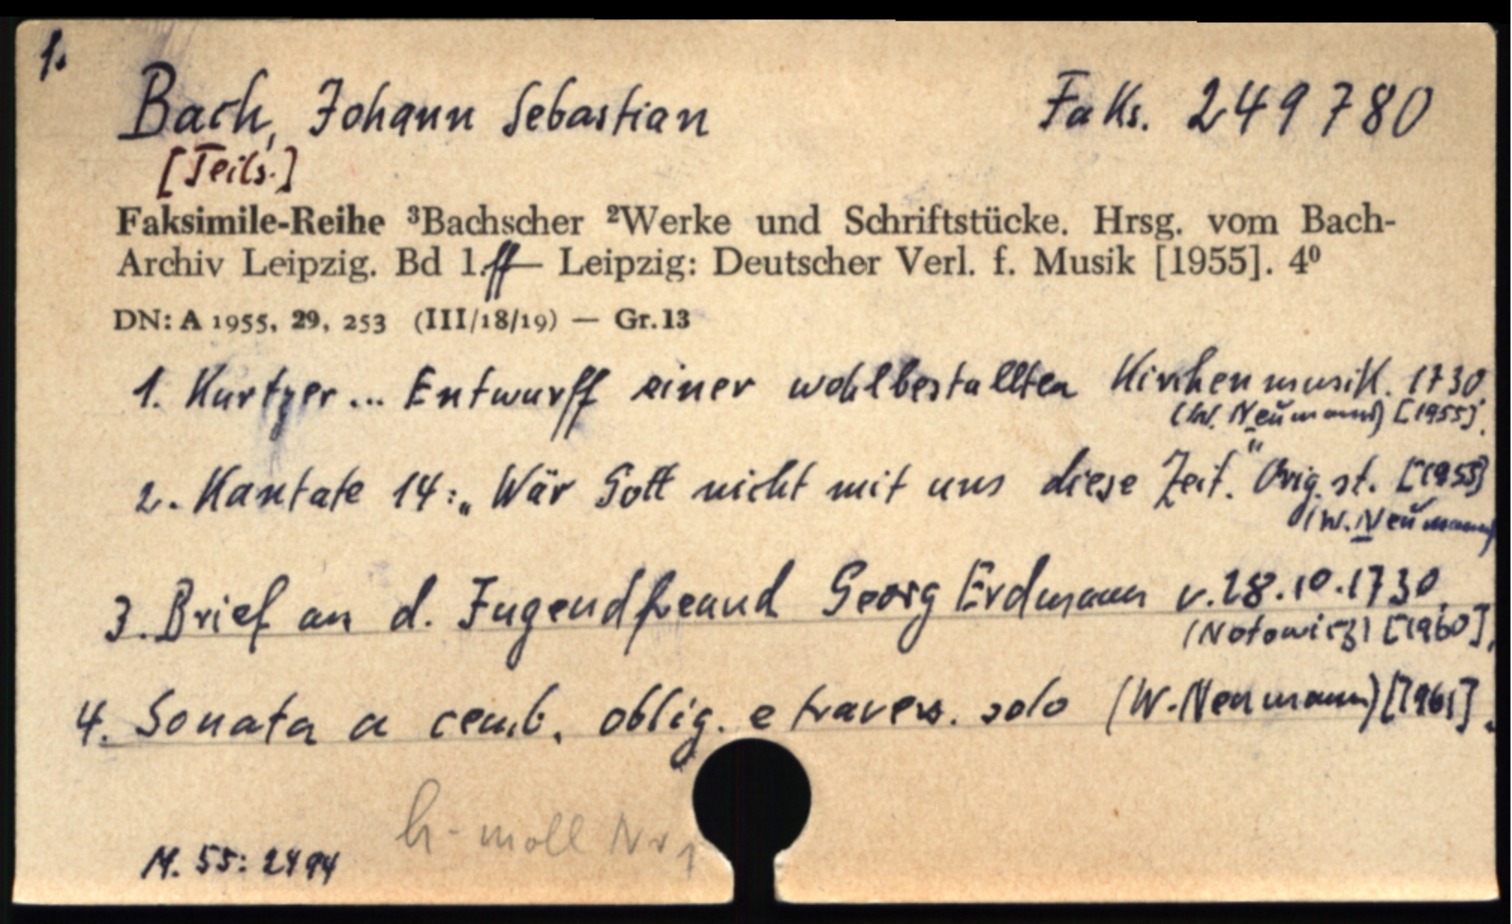 1.
Bach, Johann Sebastian Faks. 249 780
[Teils.]
Faksimile-Reihe ³Bachscher ²Werke und Schriftstücke. Hrsg. vom Bach-
Archiv Leipzig. Bd 1.ff— Leipzig: Deutscher Verl. f. Musik [1955]. 4⁰
DN: A 1955, 29, 253 (III/18/19) — Gr. 13
1. Kurtzer... Entwurff einer wohlbestallten Kirchenmusik. 1730.
(W. Neumann) [1955].
2. Kantate 14: „Wär Gott nicht mit uns diese Zeit." Orig. st. [1955]
(W. Neumann)
3. Brief an d. Jugendfreund Georg Erdmann v. 28.10.1730.
(Notowicz) [1960].
4. Sonata a cemb. oblig. e travers. solo (W. Neumann) [1961].
h-moll Nr 1
M. 55: 2494